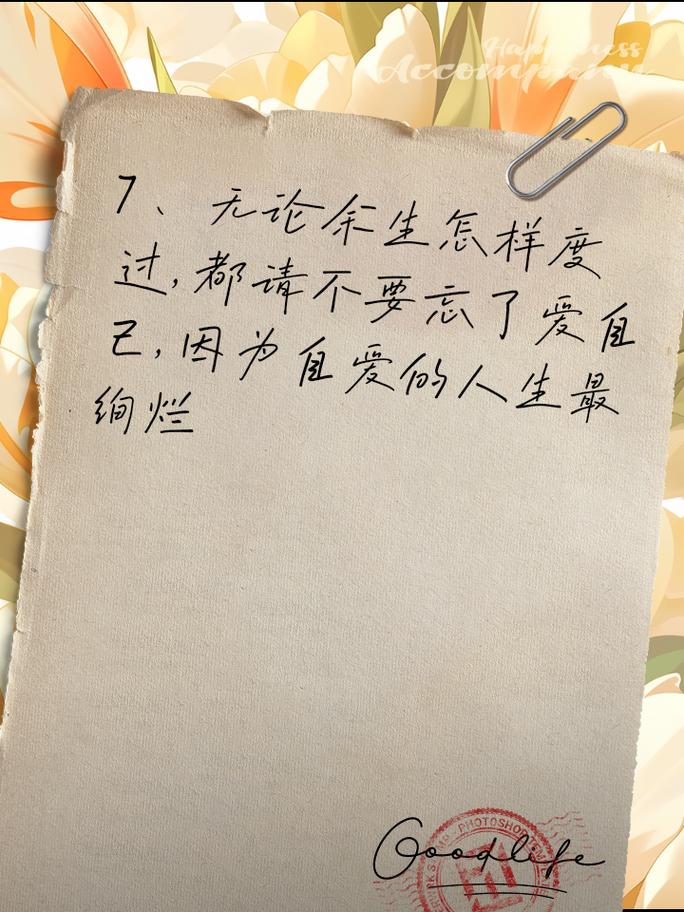 Happiness
Accompany
7、无论余生怎样度
过,都请不要忘了爱自
己,因为自爱的人生最
绚烂
PHOTOSHOP
Goodlife